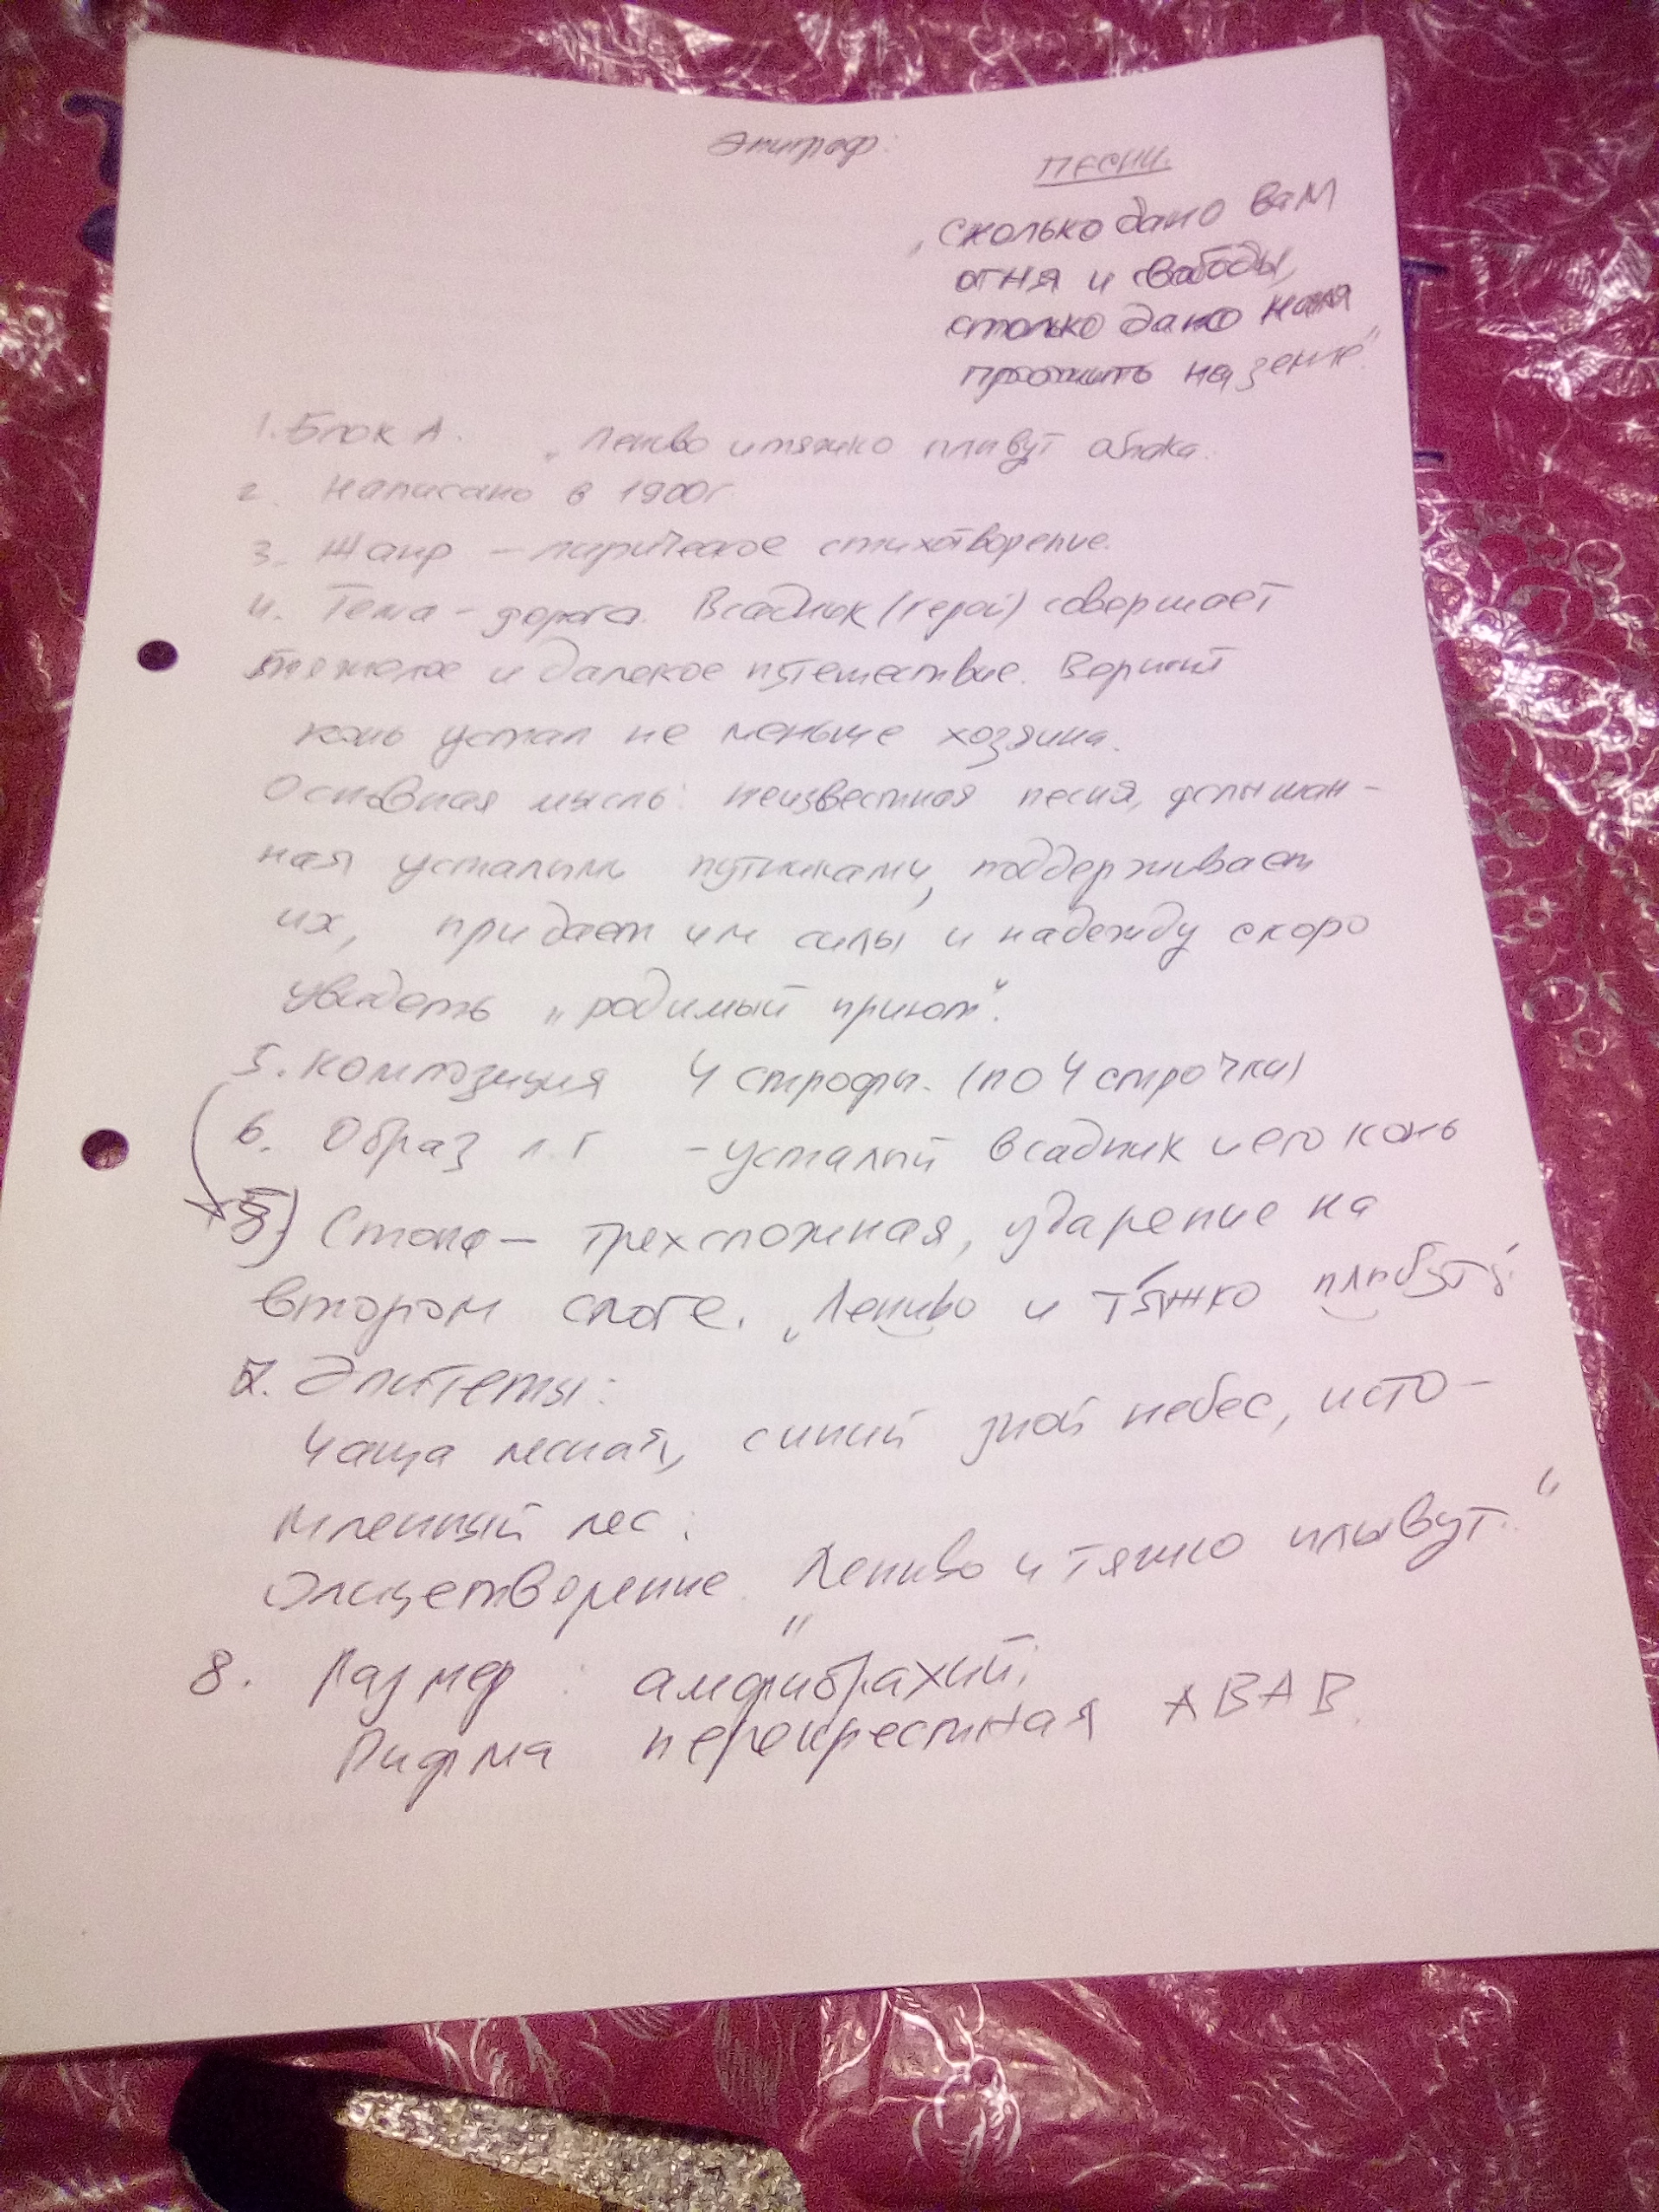 Эпиграф:
ПЕСНИ.
"Сколько дано вам
огня и свободы,
столько дано нам
прожить на земле."
1. Блок А. "Лениво и тяжко плывут облака.
2. Написано в 1900г.
3. Жанр – лирическое стихотворение.
4. Тема – дорога. Всадник (герой) совершает
тяжелое и далекое путешествие. Верный
конь устал не меньше хозяина.
Основная мысль: неизвестная песня, услышан-
ная усталыми путниками, поддерживает
их, придает им силы и надежду скоро
увидеть "родимый приют".
5. Композиция 4 строфы. (по 4 строчки)
6. Образ л.г – усталый всадник и его конь
Стопа – трехсложная, ударение на
втором слоге. "Лениво и тяжко плывут"
7. Эпитеты:
Чаща лесная, синий зной небес, исто-
мленный лес.
Олицетворение "Лениво и тяжко плывут."
8. Размер: амфибрахий.
Рифма перекрестная АВАВ.